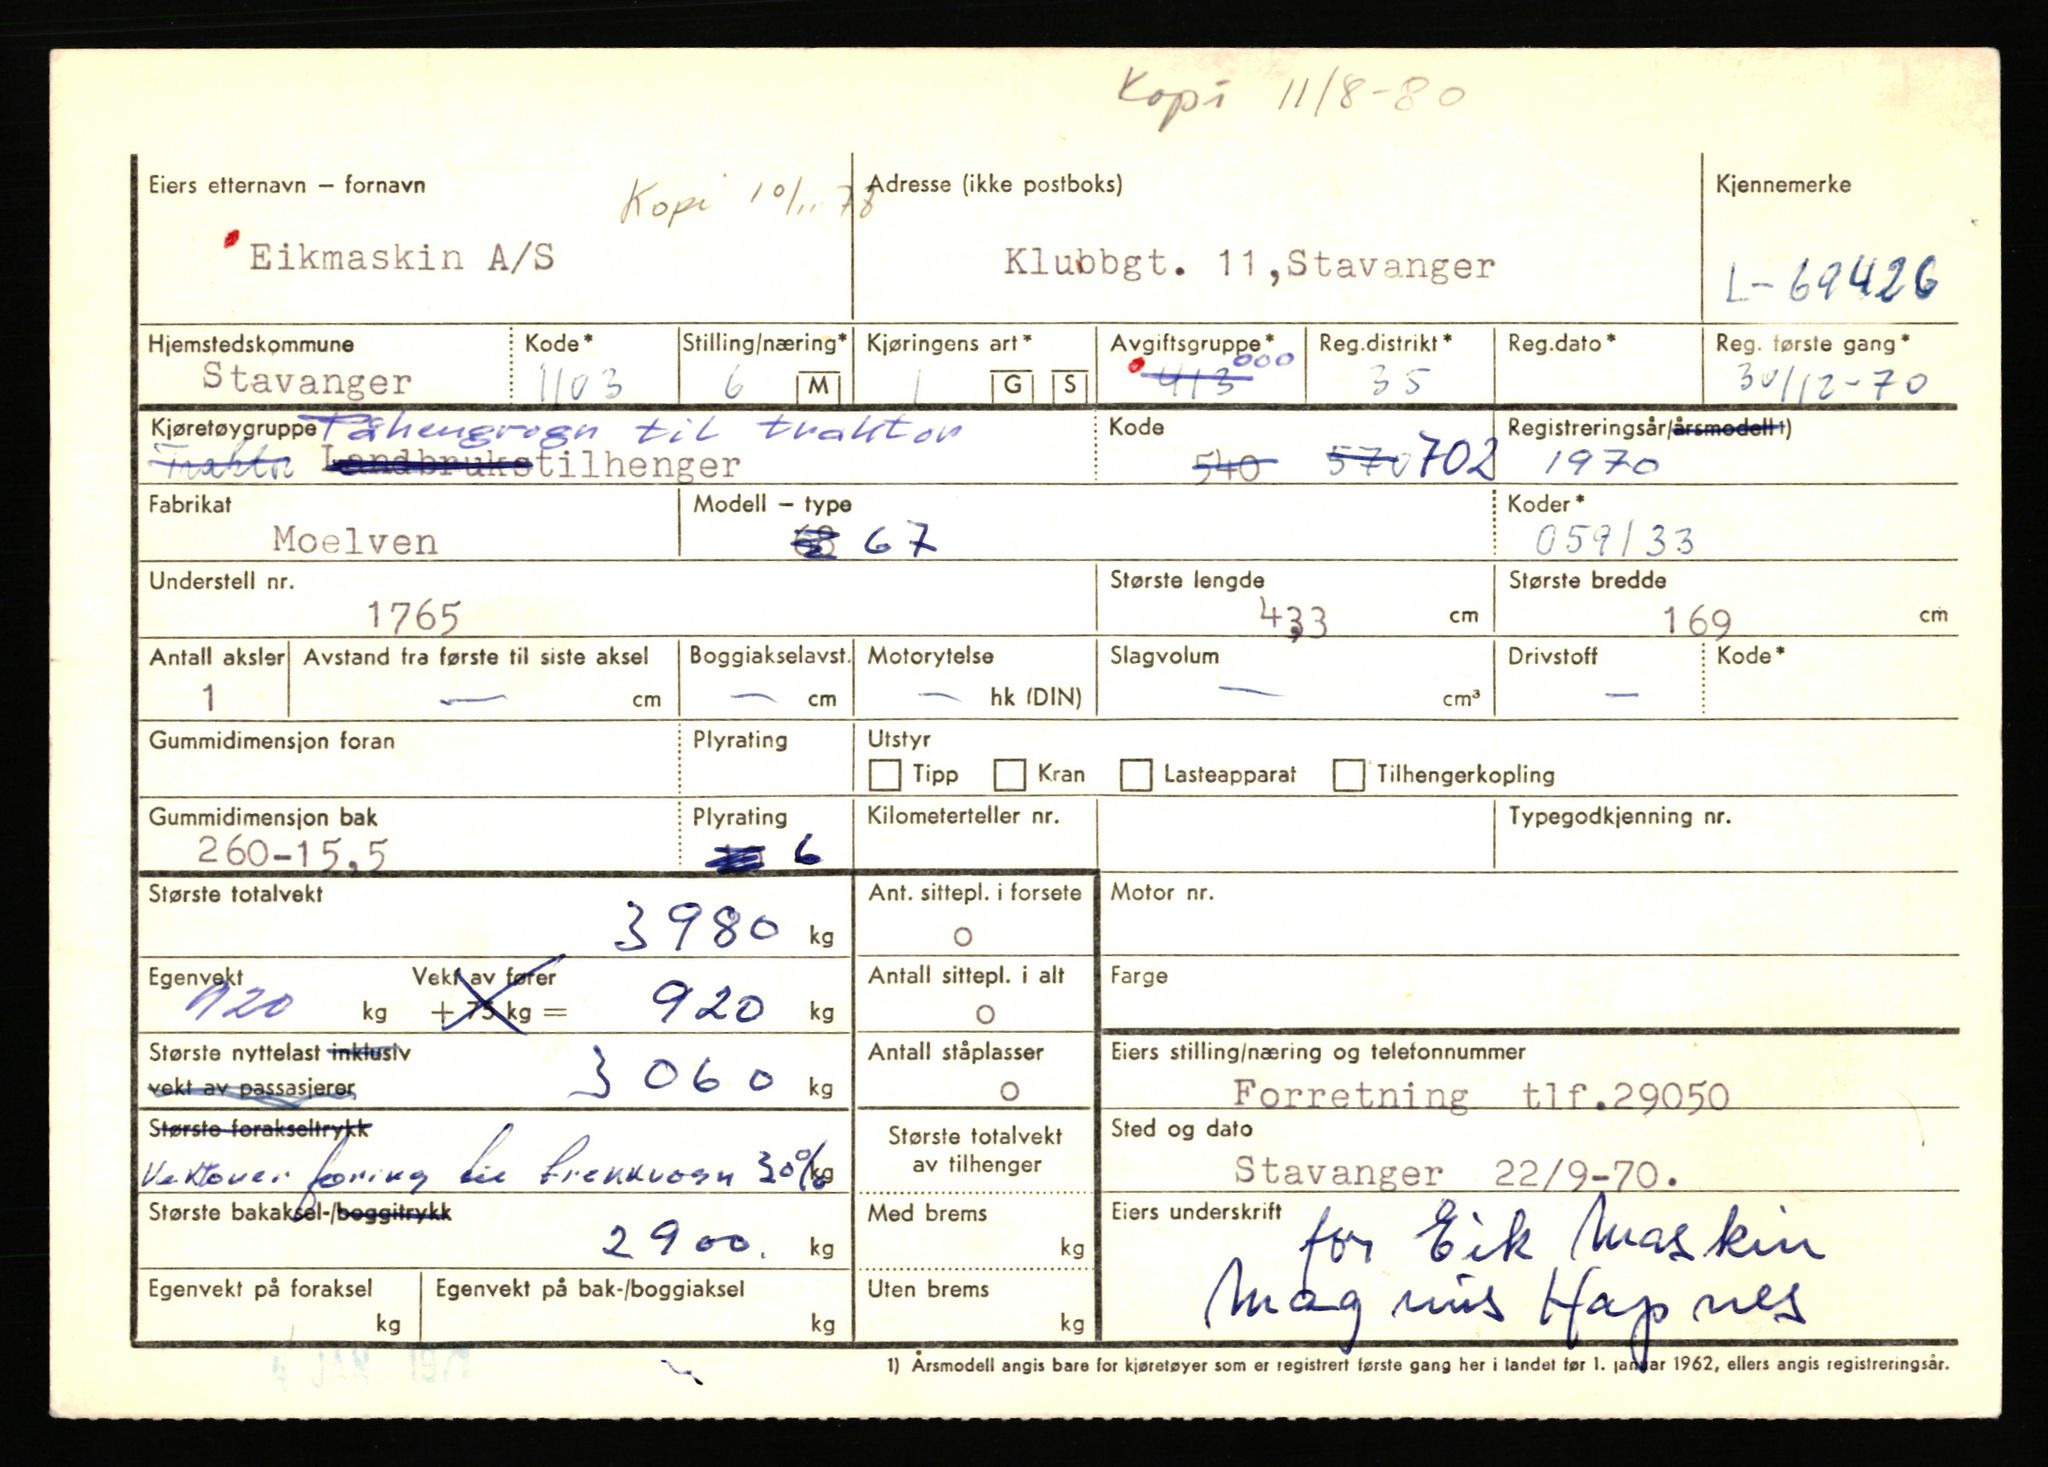 Kopi 11/8-80
Eiers etternavn – fornavn Kopi 10/11-78 Adresse (ikke postboks) Kjennemerke
Eikmaskin A/S Klubbgt. 11, Stavanger L-69426
Hjemstedskommune Kode* Stilling/næring* Kjøringens art* Avgiftsgruppe* Reg.distrikt* Reg.dato* Reg. første gang*
Stavanger 1103 6 M 1 G S 413 000 35 30/12-70
Kjøretøygruppe Påhengsvogn til traktor Kode Registreringsår/årsmodell 1)
Traktor Landbrukstilhenger 540 570 702 1970
Fabrikat Modell – type Koder*
Moelven 67 059/33
Understell nr. Største lengde Største bredde
1765 433 cm 169 cm
Antall aksler Avstand fra første til siste aksel Boggiakselavst. Motorytelse Slagvolum Drivstoff Kode*
1 — cm — cm — hk (DIN) — cm³ —
Gummidimensjon foran Plyrating Utstyr
Tipp Kran Lasteapparat Tilhengerkopling
Gummidimensjon bak Plyrating Kilometerteller nr. Typegodkjenning nr.
260-15,5 6
Største totalvekt Ant. sittepl. i forsete Motor nr.
3980 kg 0
Egenvekt Vekt av fører Antall sittepl. i alt Farge
920 kg + 75 kg = 920 kg 0
Største nyttelast inklusiv Antall ståplasser Eiers stilling/næring og telefonnummer
vekt av passasjerer 3060 kg 0 Forretning tlf.29050
Største forakseltrykk Største totalvekt Sted og dato
Vektoverføring til trekkvogn 30% kg av tilhenger Stavanger 22/9-70.
Største bakaksel-/boggitrykk Med brems Eiers underskrift for Eik Maskin
2900. kg kg
Magnus Hapnes
Egenvekt på foraksel Egenvekt på bak-/boggiaksel Uten brems
kg kg kg
1) Årsmodell angis bare for kjøretøyer som er registrert første gang her i landet før 1. januar 1962, ellers angis registreringsår.